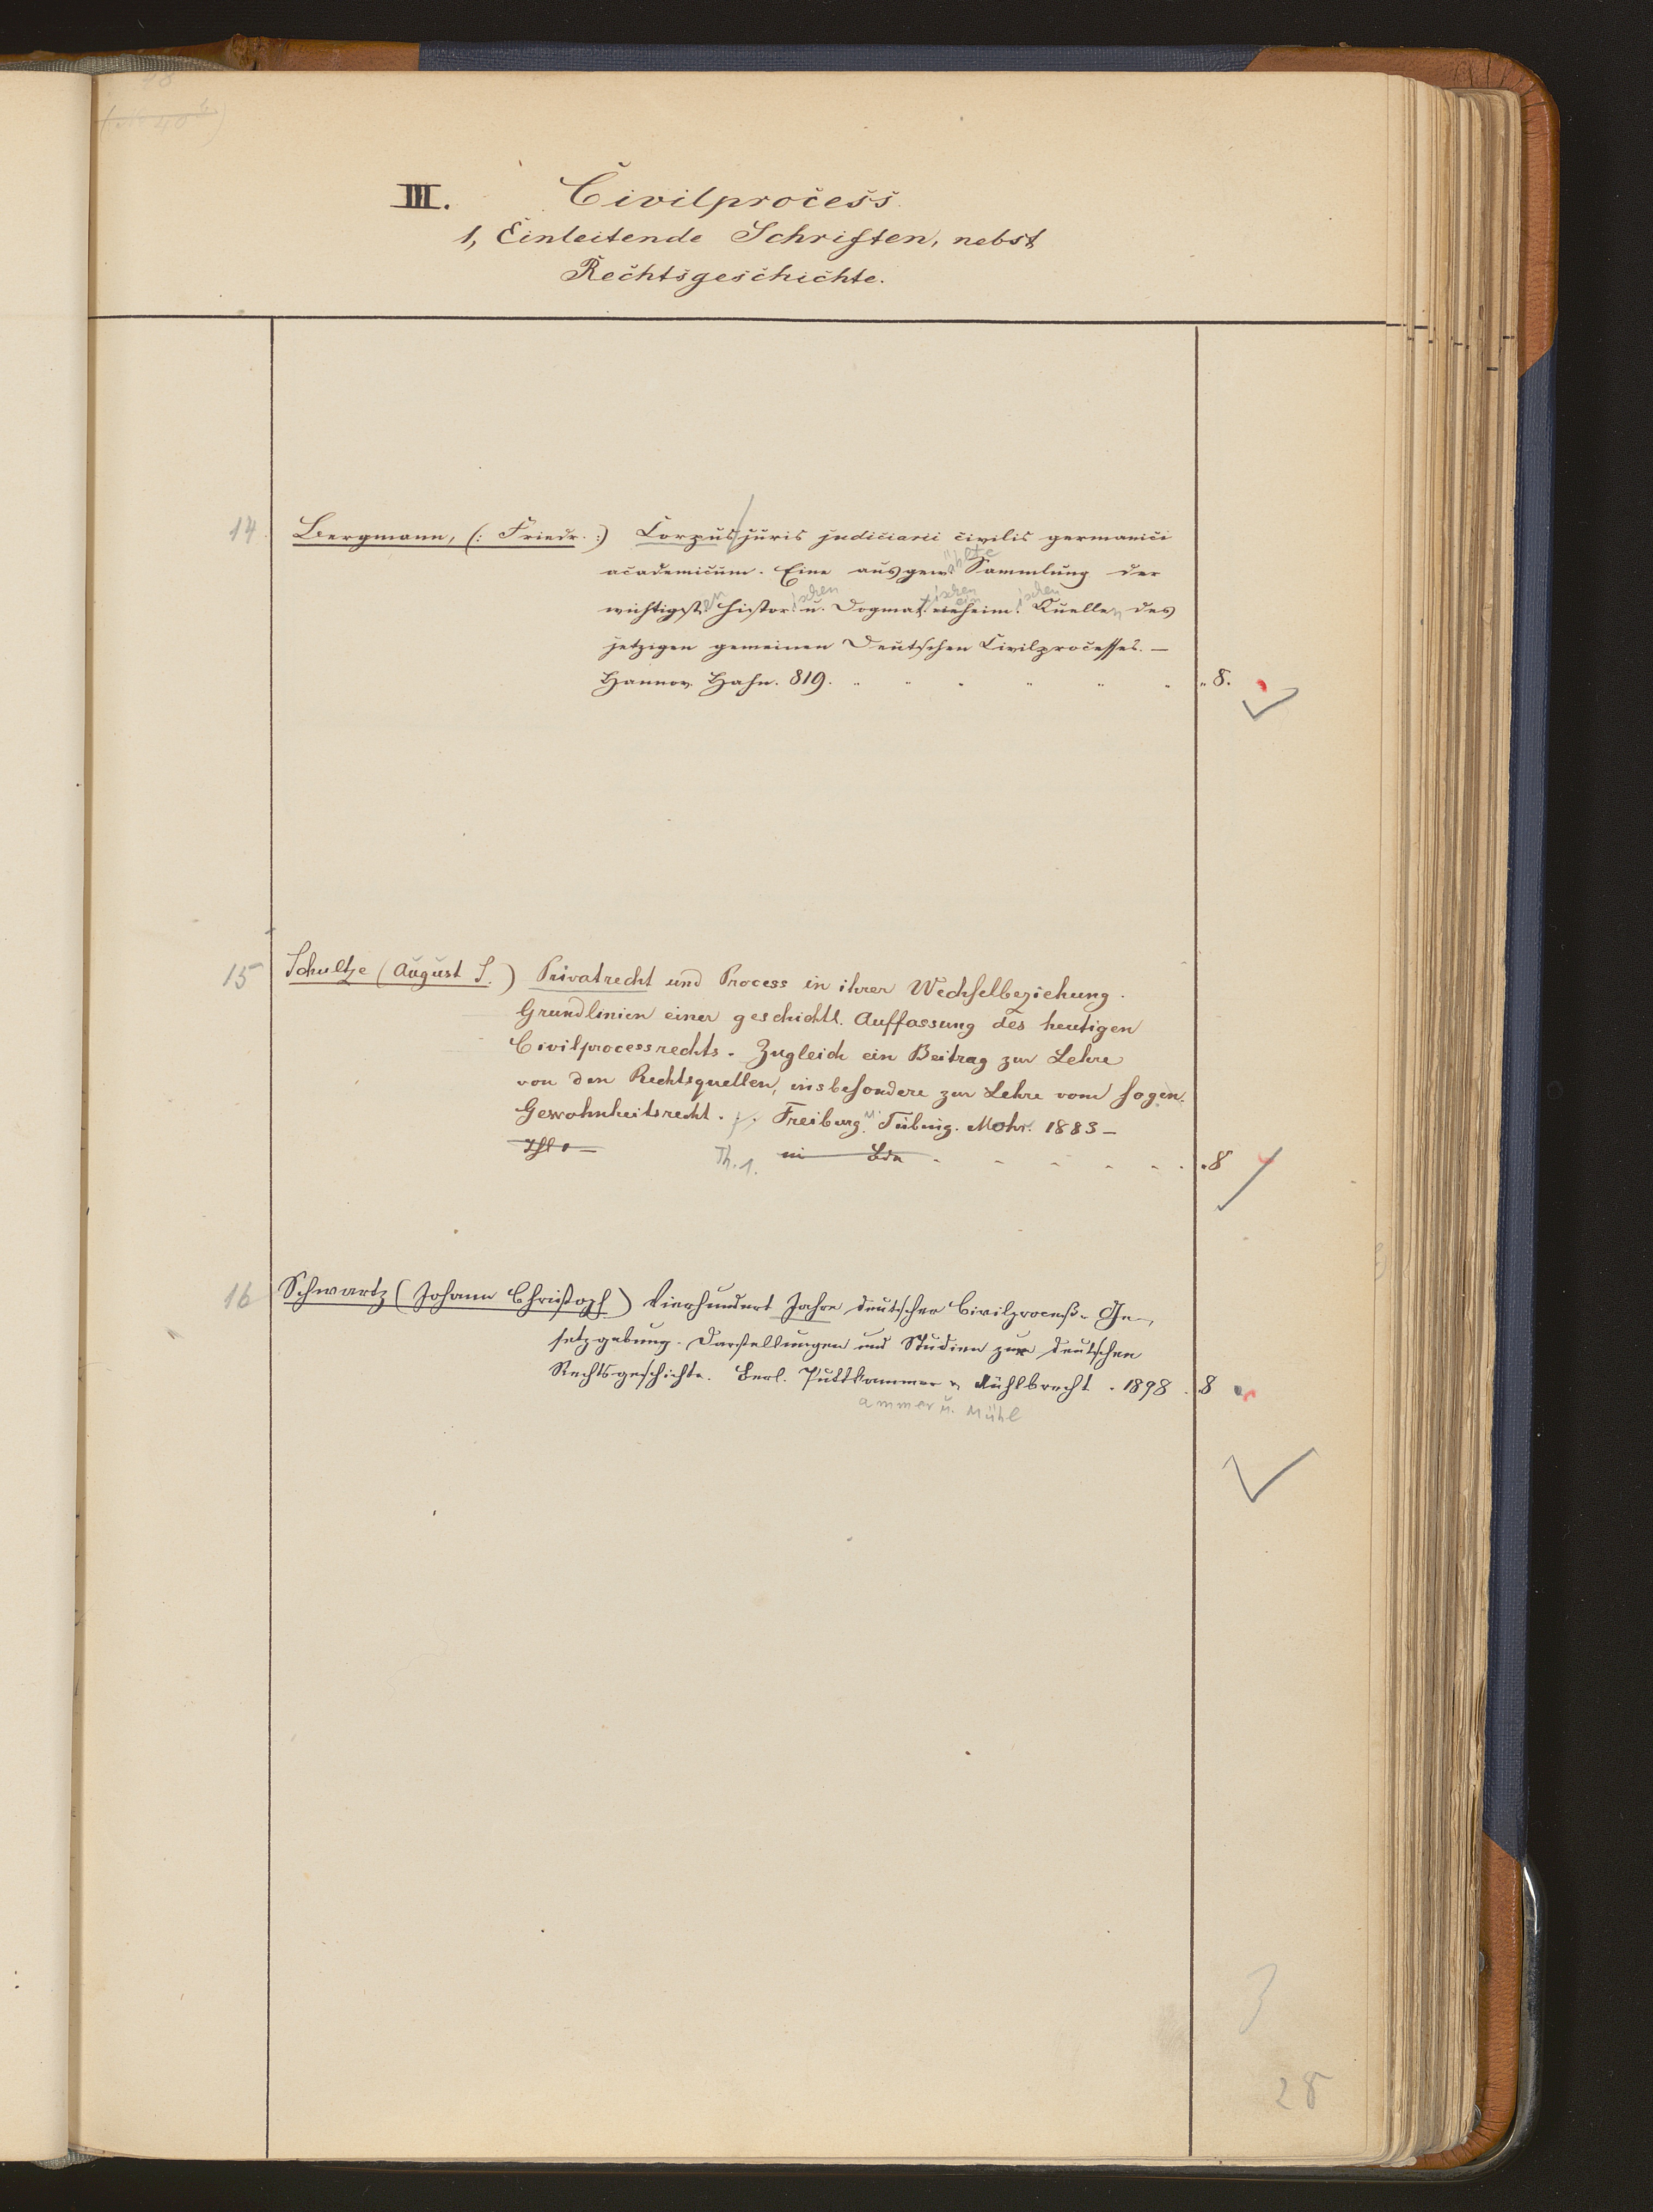 28
III. Civilprocess.
1, Einleitende Schriften, nebst
Rechtsgeschichte.
14 Bergmann, (: Friedr. :) Corpus juris judiciarii civilis germanici
ählte
academicum. Eine ausgew. Sammlung der
en ischen tischen ein ischen
wichtigst. histor. u. Dogmat. Quellen des
jetzigen gemeinen Deutschen Civilprocesses. —
Hannov. Hahn. 819. „ 8.
15 Schultze (August S.) Privatrecht und Process in ihrer Wechselbeziehung.
Grundlinien einer geschichtl. Auffassung des heutigen
Civilprocessrechts. Zugleich ein Beitrag zur Lehre
von den Rechtsquellen, insbesondere zur Lehre vom sogen.
Gewohnheitsrecht. Freiburg u. Tübing. Mohr. 1883 —
Thl 1 — Th. 1. in Bdn „ 8
16 Schwartz (Johann Christoph) Vierhundert Jahre deutscher Civilproceß-Ge-
setzgebung. Darstellungen und Studien zur deutschen
Rechtsgeschichte. Berl. Puttkammer u. Mühlbrecht. 1898. 8
ammer u. Mühl
3
28